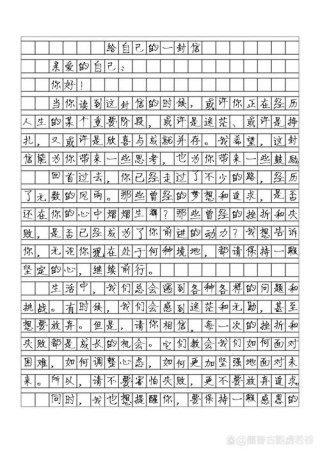 给自己的一封信
亲爱的自己：
你好！
当你读到这封信的时候，或许你正在经历
人生的某个重要阶段，或许是迷茫、或许是挣
扎，又或许是欣喜与成就并存。我希望，这封
信能为你带来一些思考，也为你带来一些鼓励
回首过去，你已经走过了不少的路，经历
了无数的风雨。那些曾经的梦想和追求，是否
还在你的心中熠熠生辉？那些曾经的挫折和失
败，是否已经成为了你前进的动力？我想告诉
你，无论你现在处于何种境地，都请保持一颗
坚定的心，继续前行。
生活中，我们总会遇到各种各样的问题和
挑战。有时候，我们会感到迷茫和无助，甚至
想要放弃。但是，请你相信，每一次的挫折和
失败都是成长的机会。它们教会我们如何面对
困难，如何调整心态，如何更加坚强地面对未
来。所以，请不要害怕失败，更不要放弃追求
同时，我也想提醒你，要保持一颗感恩的